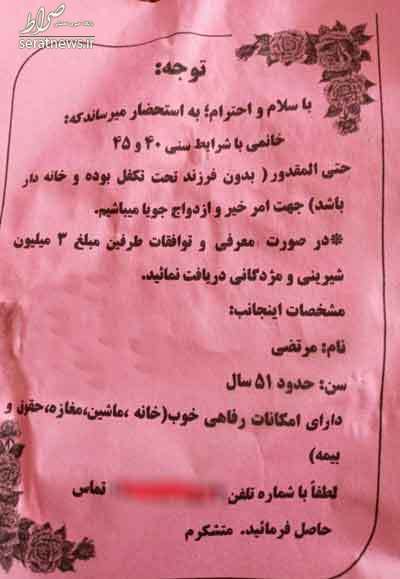 صراط
seratnews.ir
توجه:
با سلام و احترام؛ به استحضار میرساندکه:
خانمی با شرایط سنی ۴۰ و ۴۵
حتی المقدور( بدون فرزند تحت تکفل بوده و خانه دار
باشد) جهت امر خیر و ازدواج جویا میباشیم.
*در صورت معرفی و توافقات طرفین مبلغ ۳ میلیون
شیرینی و مژدگانی دریافت نمائید.
مشخصات اینجانب:
نام: مرتضی
سن: حدود ۵۱ سال
دارای امکانات رفاهی خوب(خانه ،ماشین،مغازه،حقوق و
بیمه)
لطفاً با شماره تلفن تماس
حاصل فرمائید. متشکرم